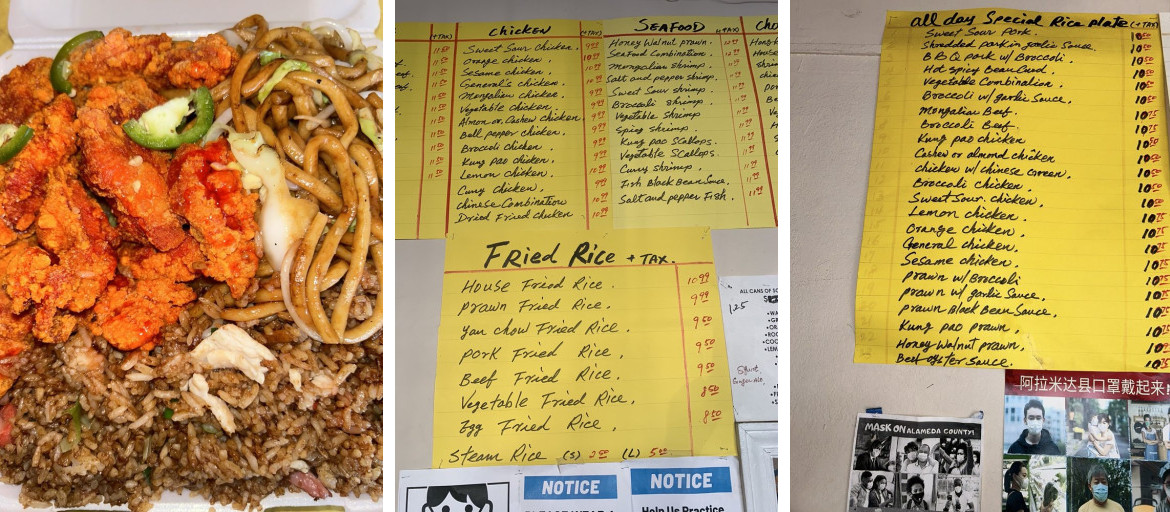 (+TAX)
11.50
CHICKEN (+TAX)
Sweet Sour Chicken. 9.99
orange chicken. 10.99
Sesame chicken. 10.99
General's chicken. 9.99
Mongolian chicken. 9.99
Vegetable chicken. 9.99
Almon or Cashew chicken.
Bell pepper chicken. 9.99
Broccoli chicken. 9.99
Kung pao chicken. 9.99
Lemon chicken.
Curry chicken. 9.99
Chinese Combination 10.99
Dried Fried Chicken 10.99
SEAFOOD (+TAX)
Honey Walnut prawn.
Seafood Combination.
Mongolian shrimp.
Salt and pepper shrimp.
Sweet Sour shrimp.
Broccoli Shrimp.
Vegetable Shrimp
Spicy shrimp.
Kung pao Scallops.
Vegetable Scallops.
Curry shrimp.
Fish Black Bean Sauce.
Salt and pepper Fish.
FRied Rice + TAX.
House Fried Rice. 10.99
prawn Fried Rice. 9.99
yan chow Fried Rice. 9.50
pork Fried Rice. 9.50
Beef Fried Rice. 9.50
Vegetable Fried Rice. 8.50
Egg Fried Rice. 8.50
Steam Rice (S) 2.00 (L) 5.00
ALL CANS OF
1.25
NOTICE
NOTICE
Help Us Practice
all day Special Rice plate (+TAX)
Sweet Sour Pork. 10.50
Shredded pork in garlic Sauce. 10.50
BBQ pork w/ Broccoli. 10.50
Hot Spicy Bean Curd. 10.50
Vegetable Combination. 10.50
Broccoli w/ garlic Sauce. 10.50
Mongolian Beef. 10.75
Broccoli Beef. 10.75
Kung pao chicken 10.50
Cashew or almond chicken
chicken w/ chinese Green.
Broccoli chicken.
Sweet Sour chicken.
Lemon chicken.
Orange chicken. 10.75
General chicken. 10.75
Sesame chicken. 10.75
prawn w/ Broccoli 10.75
prawn w/ garlic Sauce. 10.75
prawn Black Bean Sauce. 10.75
Kung pao prawn. 10.75
Honey Walnut prawn.
Beef oyster Sauce.
MASK ON ALAMEDA COUNTY!
阿拉米达县口罩戴起来!